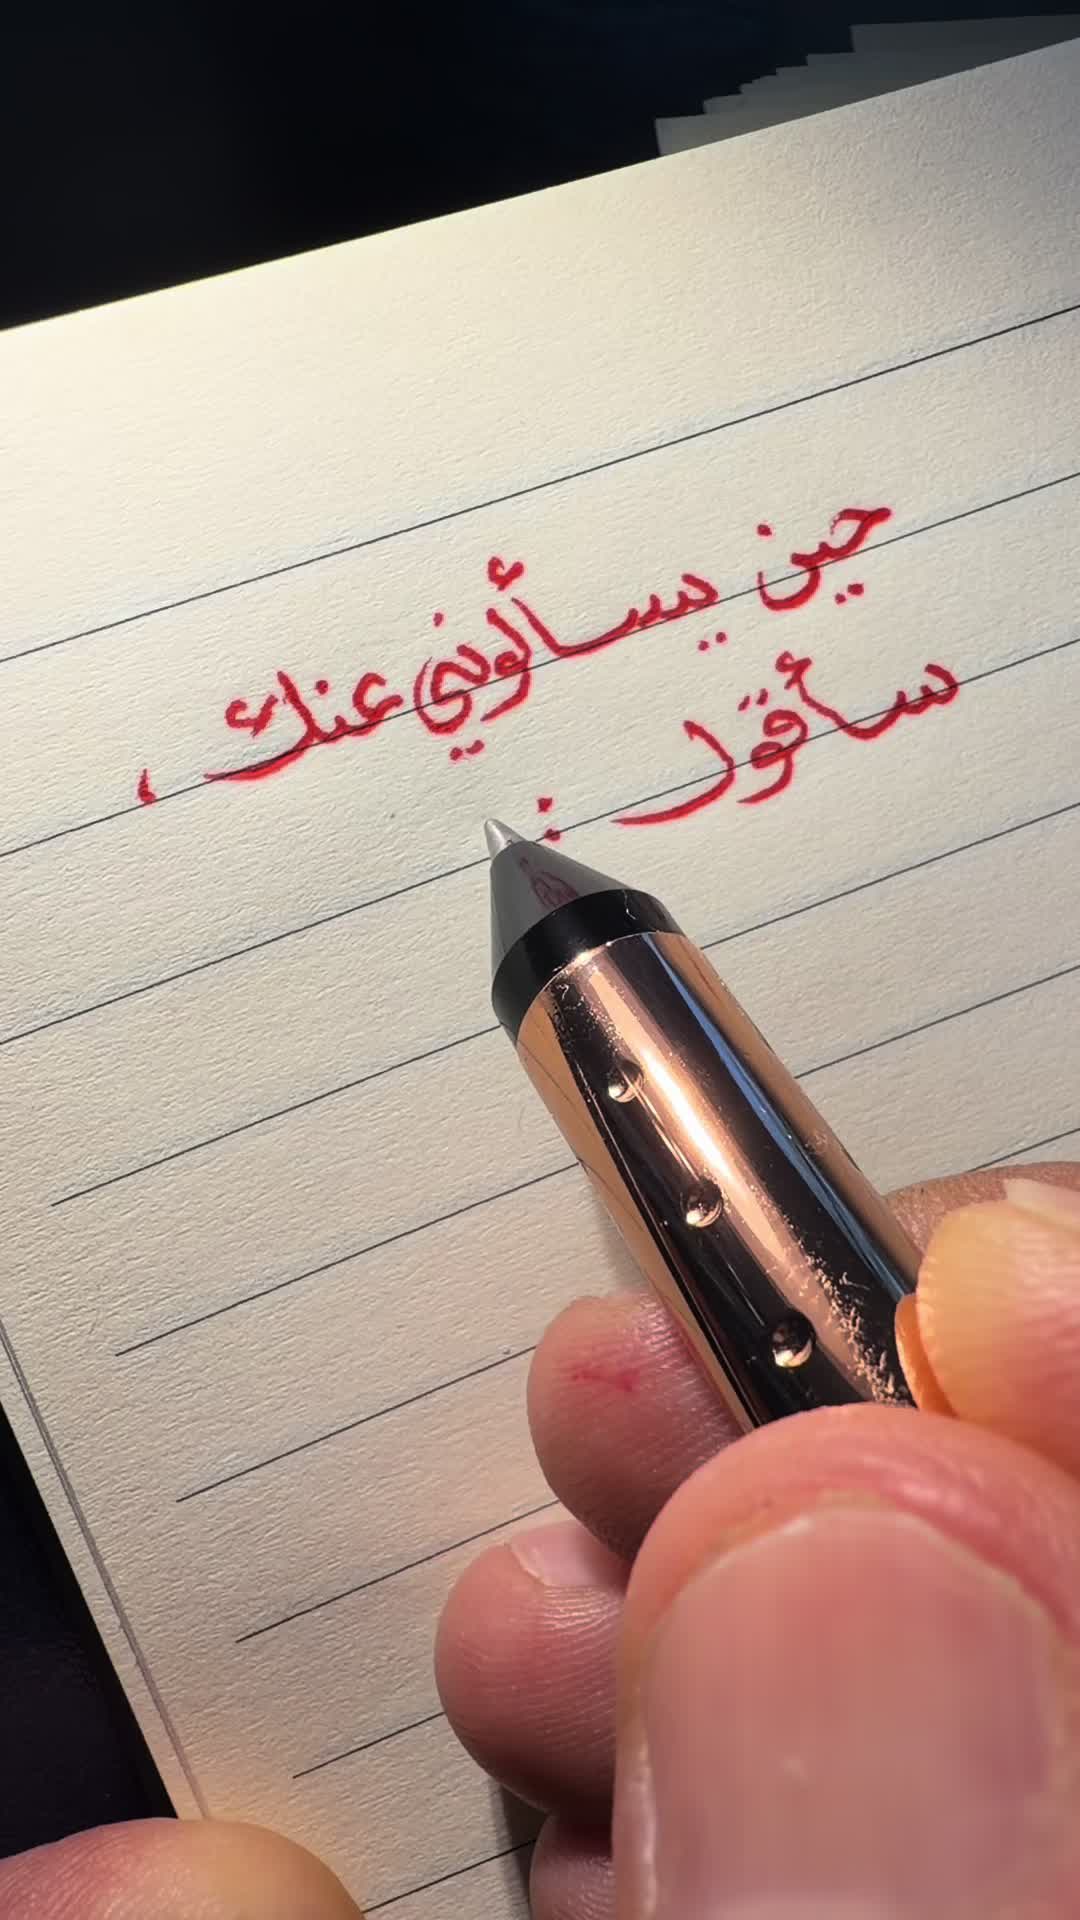 حين يسألوني عنك ،
سأقول :